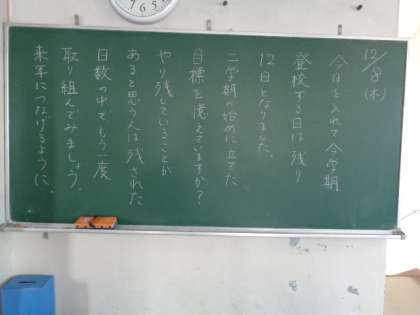 12/8(木)
今日を入れて今学期
登校する日は残り
12日となりました。
二学期の始めに立てた
目標を覚えていますか？
やり残していることが
あると思う人は残された
日数の中でもう一度
取り組んでみましょう。
来年につなげるように、